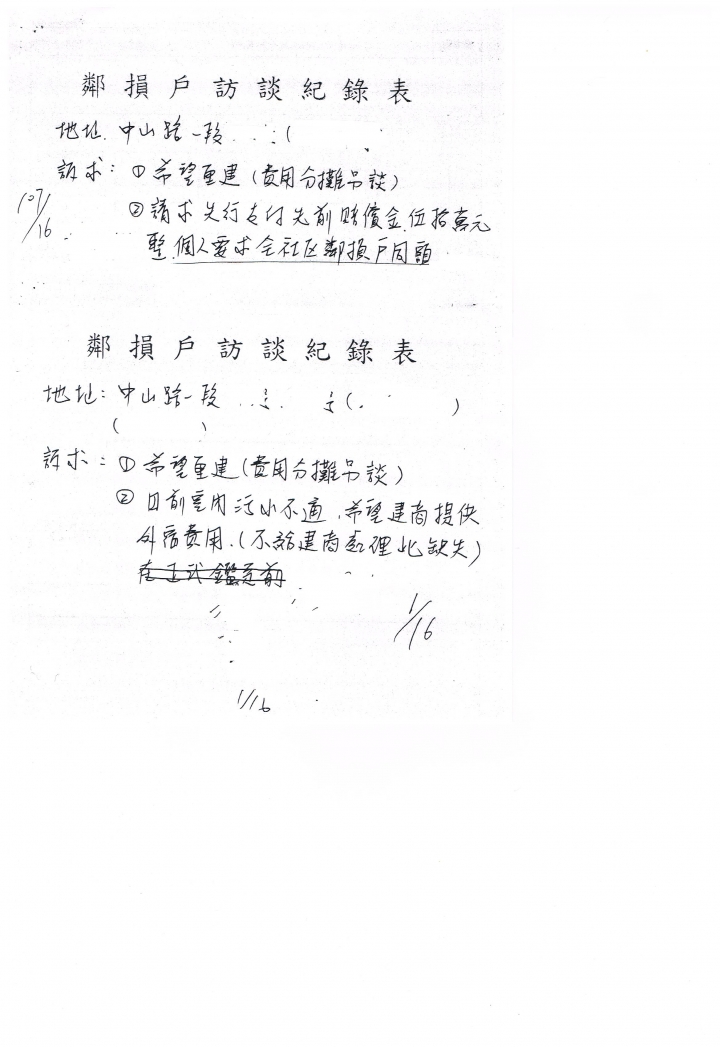 鄰損戶訪談紀錄表
地址:中山路一段
訴求:①希望重建(費用分攤另談)
107/
1/16
②請求先行支付先前賠償金伍拾萬元
整.個人要求全社区鄰損戶同額
鄰損戶訪談紀錄表
地址:中山路一段
訴求:①希望重建(費用分攤另談)
②目前室內污水不通,希望建商提供
外宿費用.(不給建商處理此缺失)
在正式鑑定前
1/16
1/16